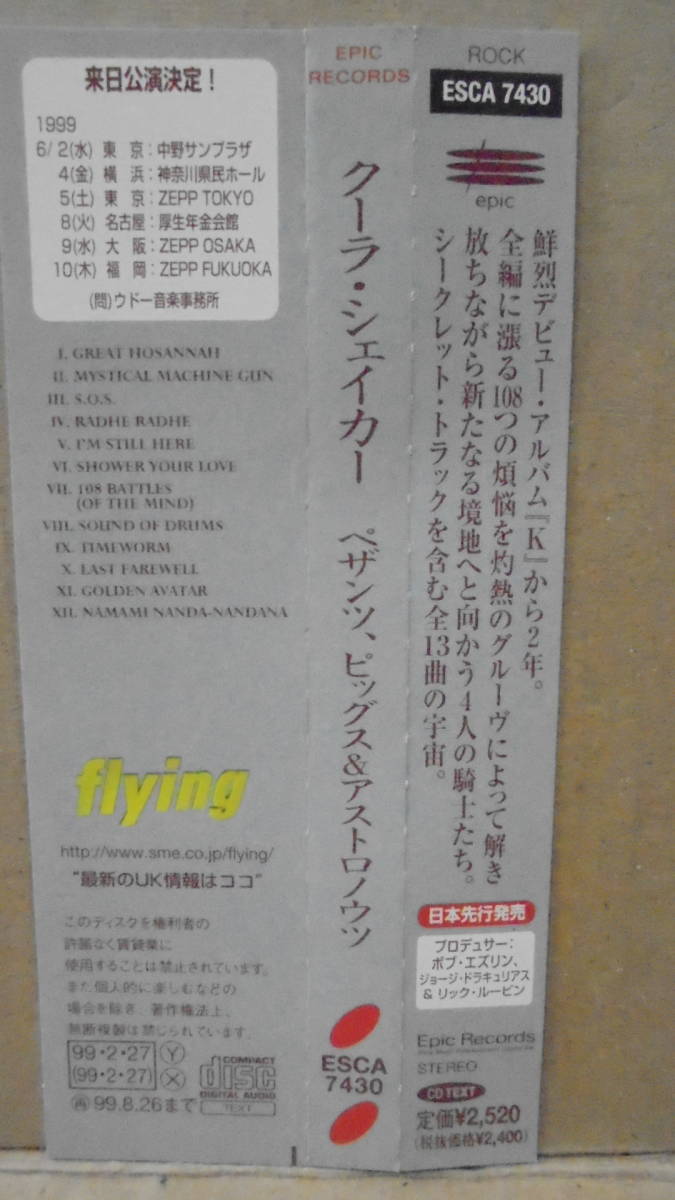 来日公演決定！
1999
6/2(水) 東 京：中野サンプラザ
4(金) 横 浜：神奈川県民ホール
5(土) 東 京：ZEPP TOKYO
8(火) 名古屋：厚生年金会館
9(水) 大 阪：ZEPP OSAKA
10(木) 福 岡：ZEPP FUKUOKA
(問)ウドー音楽事務所
I. GREAT HOSANNAH
II. MYSTICAL MACHINE GUN
III. S.O.S.
IV. RADHE RADHE
V. I'M STILL HERE
VI. SHOWER YOUR LOVE
VII. 108 BATTLES
(OF THE MIND)
VIII. SOUND OF DRUMS
IX. TIMEWORM
X. LAST FAREWELL
XI. GOLDEN AVATAR
XII. NAMAMI NANDA-NANDANA
flying
http://www.sme.co.jp/flying/
"最新のUK情報はココ"
このディスクを権利者の
許諾なく賃貸業に
使用することは禁止されています。
また個人的に楽しむなどの
場合を除き、著作権法上、
無断複製は禁じられています。
99・2・27 Ⓨ
(99・2・27) Ⓧ
㊞99.8.26まで
COMPACT
disc
DIGITAL AUDIO
TEXT
EPIC
RECORDS
クーラ・シェイカー ペザンツ、ピッグス&アストロノウツ
ESCA
7430
ROCK
ESCA 7430
epic
鮮烈デビュー・アルバム『K』から2年。
全編に漲る108つの煩悩を灼熱のグルーヴによって解き
放ちながら新たなる境地へと向かう4人の騎士たち。
シークレット・トラックを含む全13曲の宇宙。
日本先行発売
プロデュサー：
ボブ・エズリン、
ジョージ・ドラキュリアス
& リック・ルービン
Epic Records
STEREO
CD TEXT
定価¥2,520
(税抜価格¥2,400)